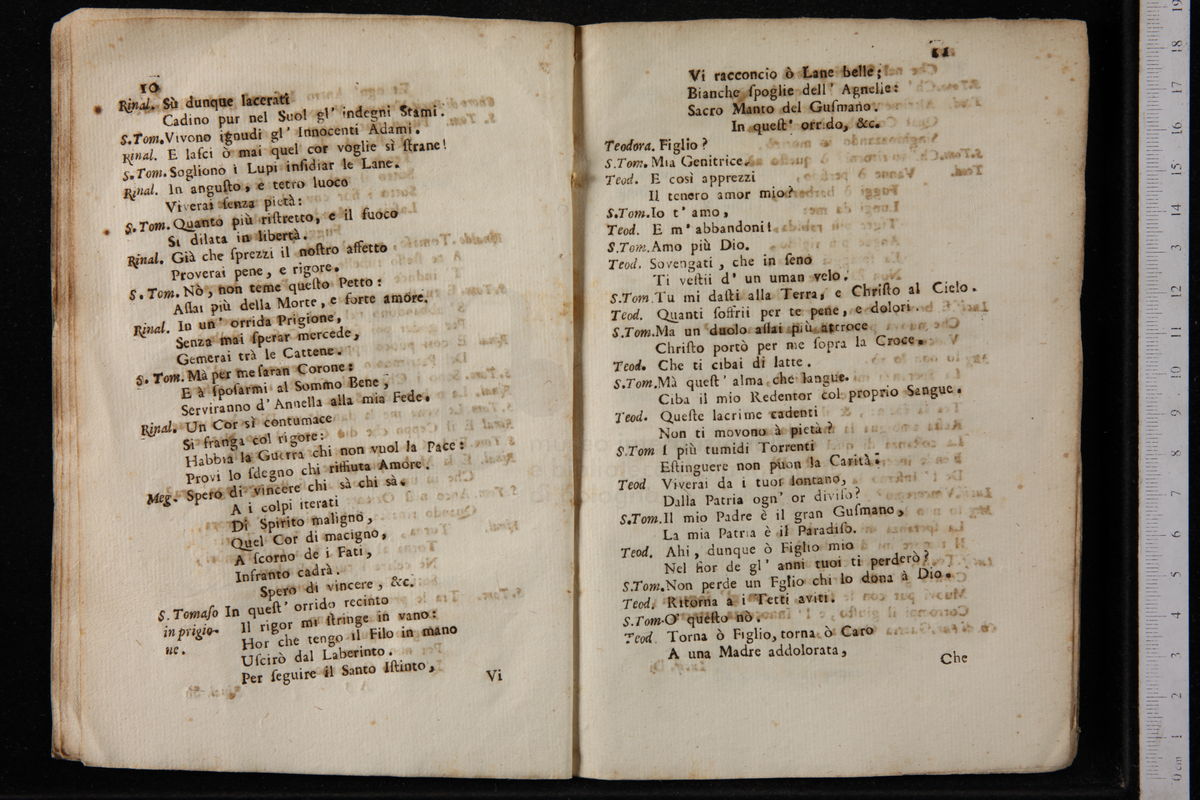 10
Rinal. Sù dunque lacerati
Cadino pur nel Suol gl' indegni Stami.
S.Tom. Vivono ignudi gl' Innocenti Adami.
Rinal. E laſci ò mai quel cor voglie sì ſtrane!
S.Tom. Sogliono i Lupi inſidiar le Lane.
Rinal. In anguſto, e tetro luoco
Viverai ſenza pietà:
S.Tom. Quanto più riſtretto, e il fuoco
Si dilata in libertà.
Rinal. Già che ſprezzi il noſtro affetto
Proverai pene, e rigore.
S.Tom. Nò, non teme queſto Petto:
Aſſai più della Morte, e forte amore.
Rinal. In un' orrida Prigione,
Senza mai ſperar mercede,
Gemerai trà le Cattene.
S.Tom. Mà per me ſaran Corone:
E à ſpoſarmi al Sommo Bene,
Serviranno d' Annella alla mia Fede.
Rinal. Un Cor sì contumace
Si franga col rigore:
Habbia la Guerra chi non vuol la Pace:
Provi lo ſdegno chi riffiuta Amore.
Meg. Spero di vincere chi sà chi sà.
A i colpi iterati
Di Spirito maligno,
Quel Cor di macigno,
A ſcorno de i Fati,
Infranto cadrà.
Spero di vincere, &c.
S. Tomaſo In queſt' orrido recinto
in prigio- Il rigor mi ſtringe in vano:
ne. Hor che tengo il Filo in mano
Uſcirò dal Laberinto.
Per ſeguire il Santo Iſtinto,
Vi
11
Vi racconcio ò Lane belle;
Bianche ſpoglie dell' Agnelle:
Sacro Manto del Guſmano.
In queſt' orrido, &c.
Teodora. Figlio?
S.Tom. Mia Genitrice.
Teod. E così apprezzi
Il tenero amor mio?
S.Tom. Io t' amo,
Teod. E m' abbandoni!
S.Tom. Amo più Dio.
Teod. Sovengati, che in ſeno
Ti veſtii d' un uman velo.
S.Tom. Tu mi daſti alla Terra, e Chriſto al Cielo.
Teod. Quanti ſoffrii per te pene, e dolori.
S.Tom. Ma un duolo aſſai più attroce
Chriſto portò per me ſopra la Croce.
Teod. Che ti cibai di latte.
S.Tom. Mà queſt' alma che langue.
Ciba il mio Redentor col proprio Sangue.
Teod. Queſte lacrime cadenti
Non ti movono à pietà?
S.Tom I più tumidi Torrenti
Eſtinguere non puon la Carità:
Teod Viverai da i tuoi lontano,
Dalla Patria ogn' or diviſo?
S.Tom. Il mio Padre è il gran Guſmano,
La mia Patria è il Paradiſo.
Teod. Ahi, dunque ò Figlio mio
Nel fior de gl' anni tuoi ti perderò?
S.Tom. Non perde un Fglio chi lo dona à Dio.
Teod. Ritorna a i Tetti aviti.
S.Tom. O' queſto nò.
Teod. Torna ò Figlio, torna ò Caro
A una Madre addolorata,
Che